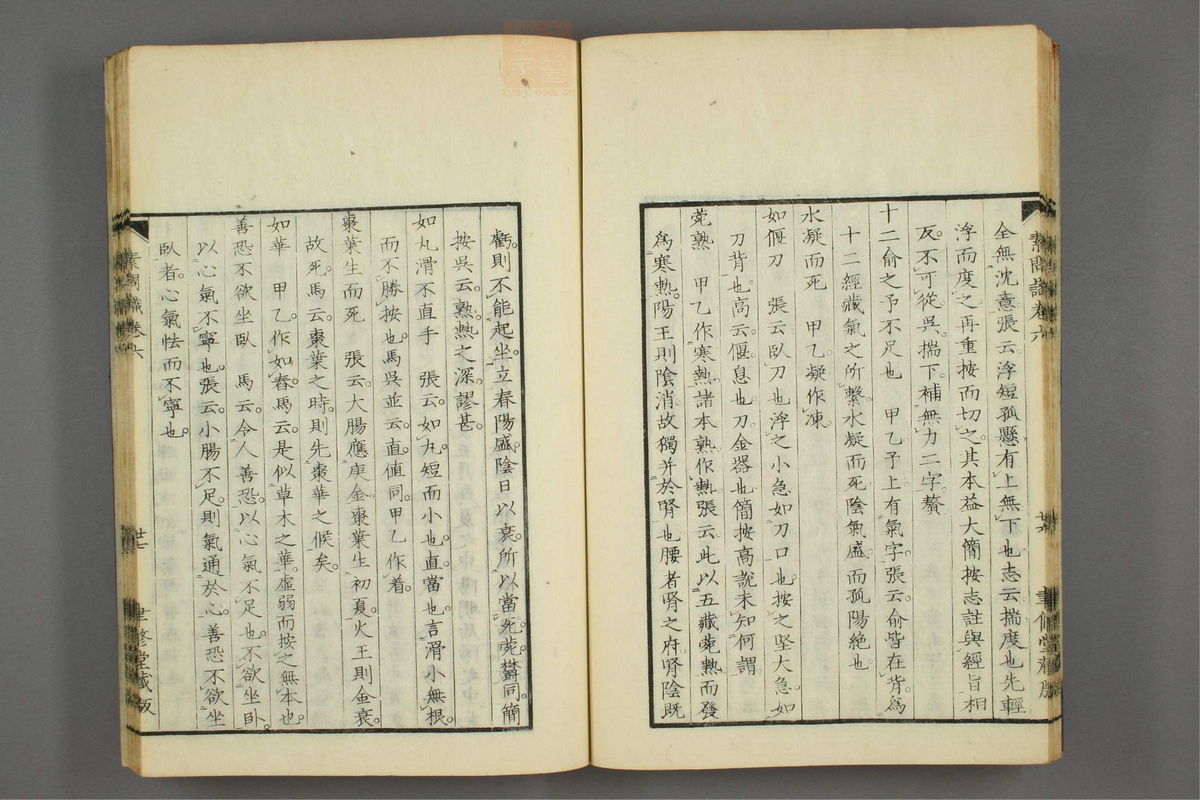 全無沈意張云浮短孤懸有上無下也志云揣度也先輕
浮而度之再重按而切之其本益大簡按志註與經旨相
反不可從吳揣下補無力二字贅
十二俞之予不足也　甲乙予上有氣字張云俞皆在背爲
十二經藏氣之所繫水凝而死陰氣盛而孤陽絶也
水凝而死　甲乙凝作凍
如偃刀　張云臥刀也浮之小急如刀口也按之堅大急如
刀背也高云偃息也刀金器也簡按高說未知何謂
菀熟　甲乙作寒熱諸本熟作熱張云此以五藏菀熱而發
爲寒熱陽王則陰消故獨并於腎也腰者腎之府腎陰既
素問識卷六
虧則不能起坐立春陽盛陰日以衰所以當死菀鬱同簡
按吳云熟熱之深謬甚
如丸滑不直手　張云如丸短而小也直當也言滑小無根
而不勝按也馬吳並云直値同甲乙作着
棗葉生而死　張云大腸應庚金棗葉生初夏火王則金衰
故死馬云棗葉之時則先棗華之候矣
如華　甲乙作如舂馬云是似草木之華虛弱而按之無本也
善恐不欲坐臥　馬云令人善恐以心氣不足也不欲坐臥
以心氣不寧也張云小腸不足則氣通於心善恐不欲坐
臥者心氣怯而不寧也
素問識卷六
廿七
聿修堂藏版